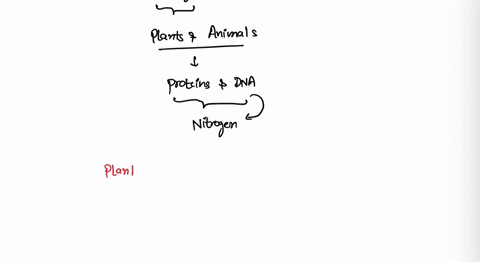 Plants & Animals
Proteins & DNA
Nitrogen
Plan